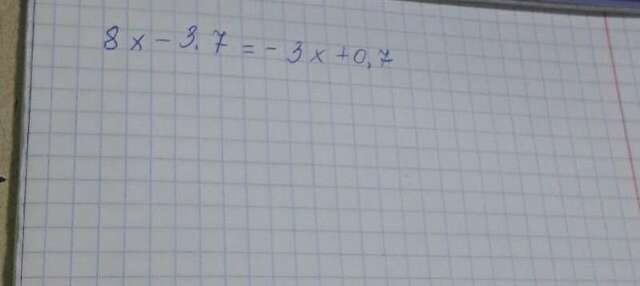 8x - 3,7 = - 3x + 0,7